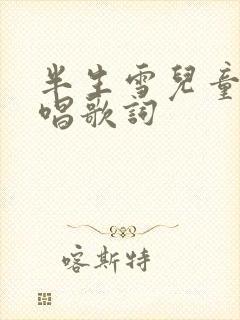 半生雪兒童
唱歌詞
喀斯特